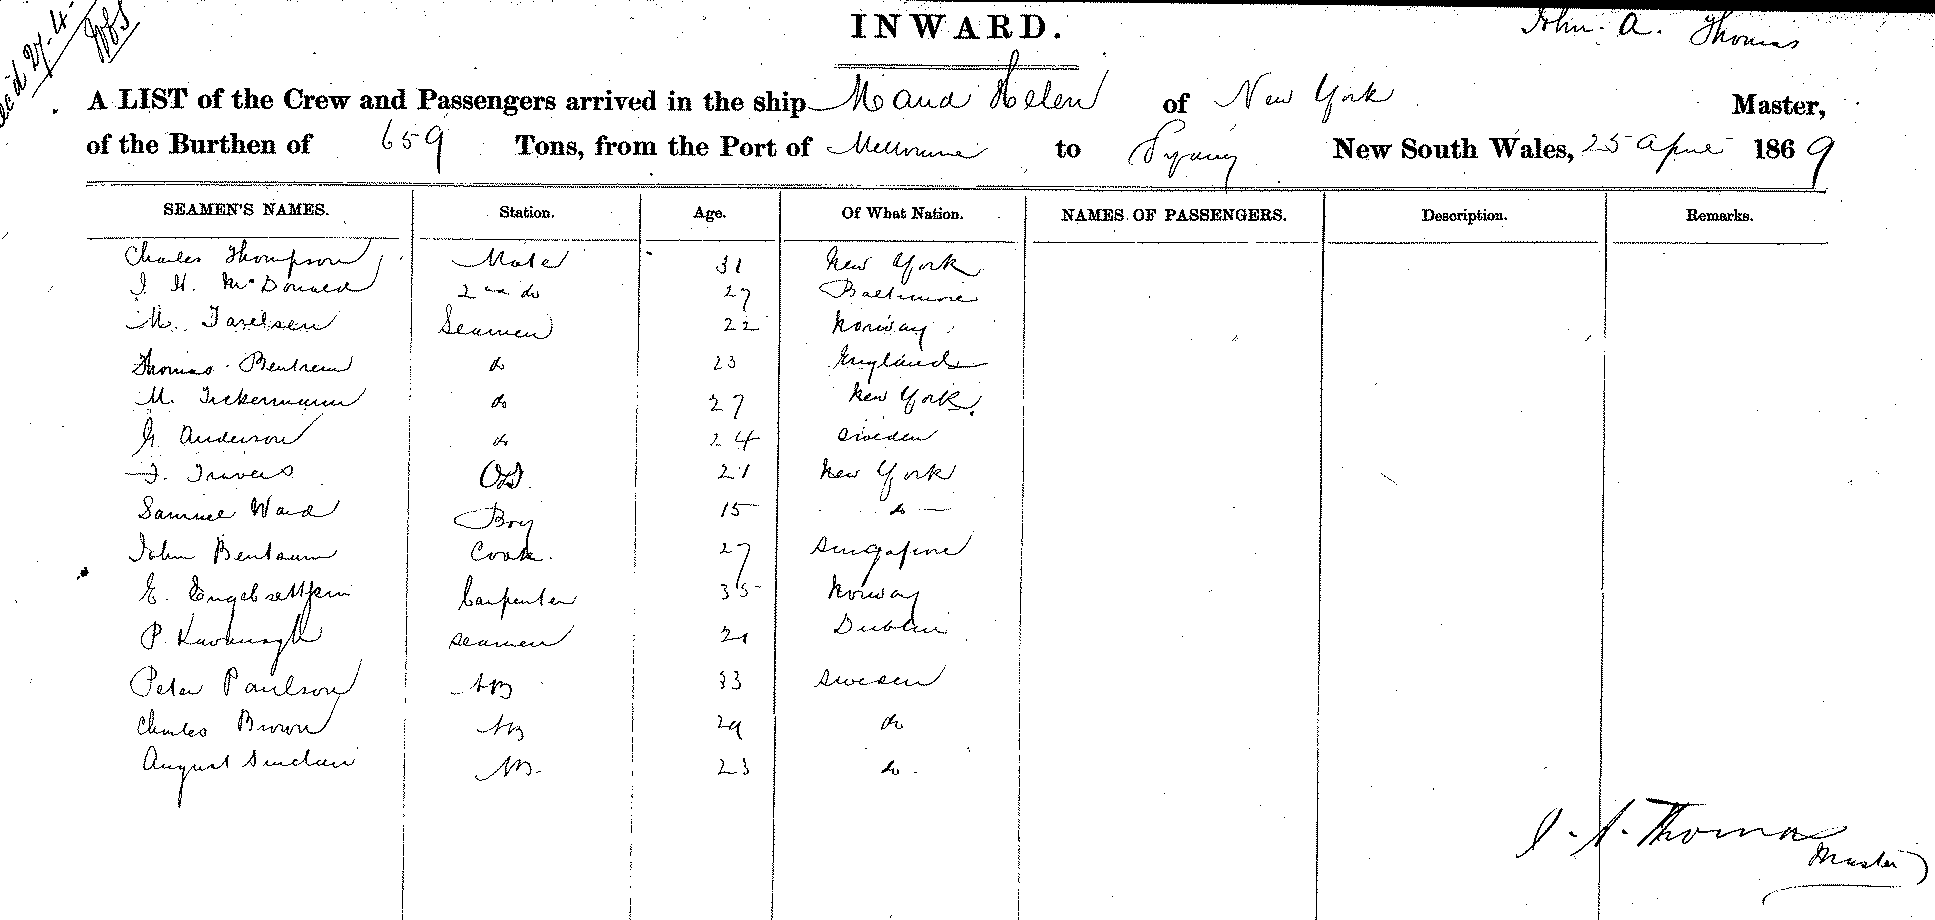 Rec'd 27-4-
INWARD.
John. A. Thomas
A LIST of the Crew and Passengers arrived in the ship Maud Helen of New York Master,
of the Burthen of 659 Tons, from the Port of Melbourne to Sydney New South Wales, 25 April 1869
SEAMEN'S NAMES. Station. Age. Of What Nation. NAMES OF PASSENGERS. Description. Remarks.
Charles Thompson Mate 31 New York
J. H. McDonald 2nd do 27 Baltimore
M. Seamen 22 Norway
Thomas do 23 England
M. Tickermann do 27 New York
G. Anderson do 24 Sweden
F. Travers OS 21 New York
Samuel Ward Boy 15 do
John Cook 27 Singapore
E. Carpenter 35 Norway
P. Kavanagh Seamen 21 Dublin
Peter Paulson AB 33 Sweden
Charles Brown AB 29 do
August Sinclair AB 23 do
J. A. Thomas
Master